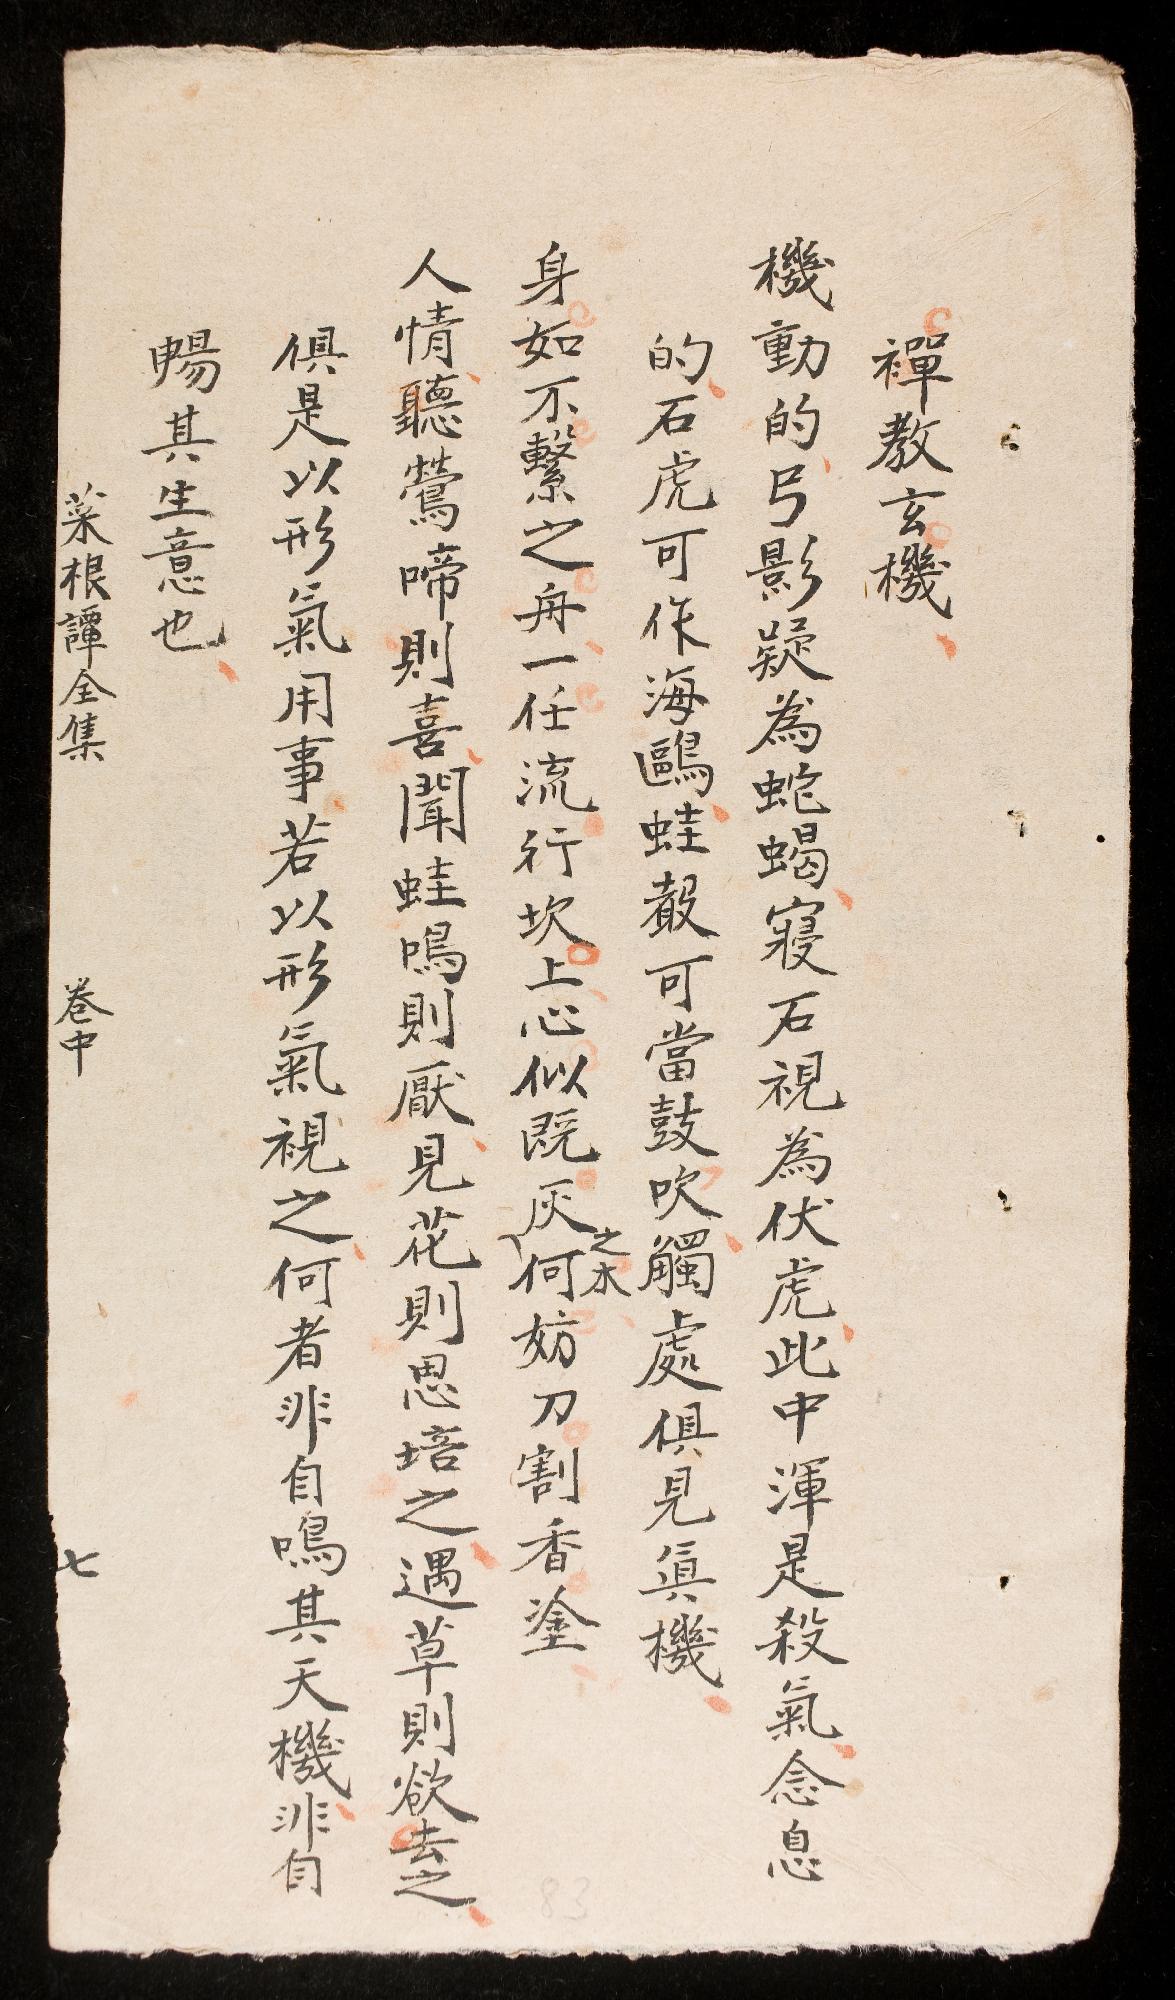 禪教玄機
機動的弓影疑為蛇蝎寢石視為伏虎此中渾是殺氣念息
的石虎可作海鷗蛙聲可當鼓吹觸處俱見眞機
身如不繫之舟一任流行坎止心似既灰之木何妨刀割香塗
人情聽鶯啼則喜聞蛙鳴則厭見花則思培之遇草則欲去之
俱是以形氣用事若以形氣視之何者非自鳴其天機非自
暢其生意也
菜根譚全集
卷中
七
83